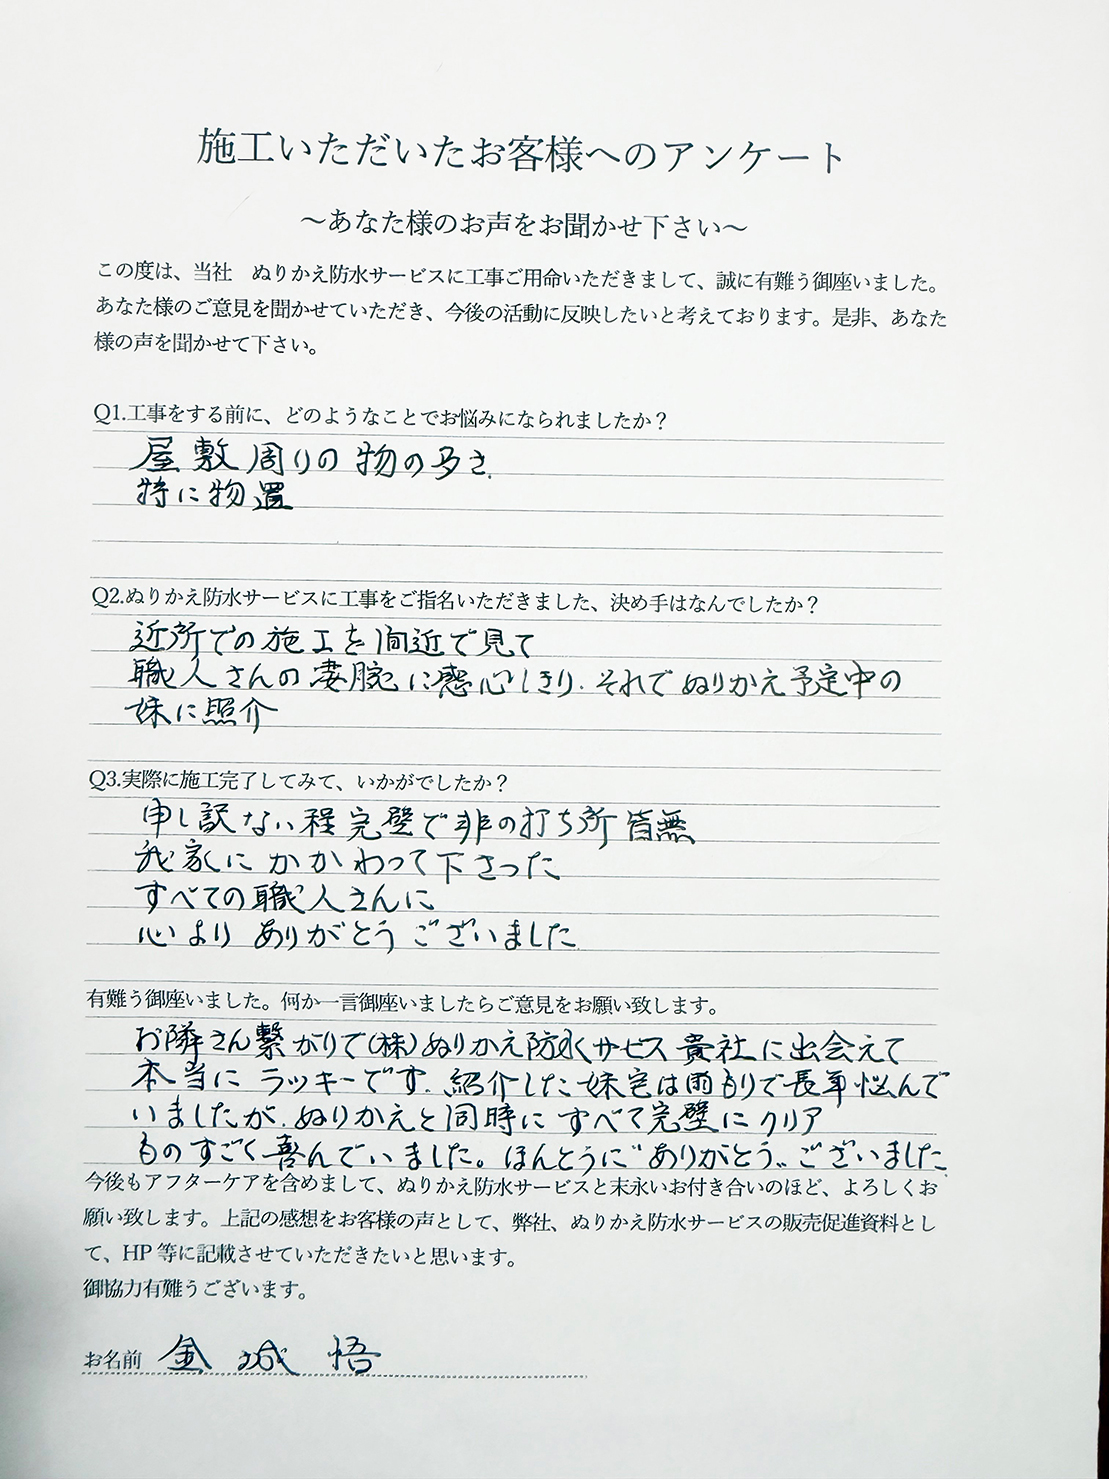 施工いただいたお客様へのアンケート
～あなた様のお声をお聞かせ下さい～
この度は、当社　ぬりかえ防水サービスに工事ご用命いただきまして、誠に有難う御座いました。
あなた様のご意見を聞かせていただき、今後の活動に反映したいと考えております。是非、あなた
様の声を聞かせて下さい。
Q1.工事をする前に、どのようなことでお悩みになられましたか？
屋敷周りの物の多さ.
特に物置
Q2.ぬりかえ防水サービスに工事をご指名いただきました、決め手はなんでしたか？
近所での施工を間近で見て
職人さんの凄腕に感心しきり.それでぬりかえ予定中の
妹に照介
Q3.実際に施工完了してみて、いかがでしたか？
申し訳ない程完璧で非の打ち所皆無
我家にかかわって下さった
すべての職人さんに
心よりありがとうございました.
有難う御座いました。何か一言御座いましたらご意見をお願い致します。
お隣さん繋がりで(株)ぬりかえ防水サービス貴社に出会えて
本当にラッキーです.紹介した妹宅は雨もりで長年悩んで
いましたが.ぬりかえと同時にすべて完璧にクリア
ものすごく喜んでいました。ほんとうに"ありがとう"ございました.
今後もアフターケアを含めまして、ぬりかえ防水サービスと末永いお付き合いのほど、よろしくお
願い致します。上記の感想をお客様の声として、弊社、ぬりかえ防水サービスの販売促進資料とし
て、HP 等に記載させていただきたいと思います。
御協力有難うございます。
お名前 金城 悟